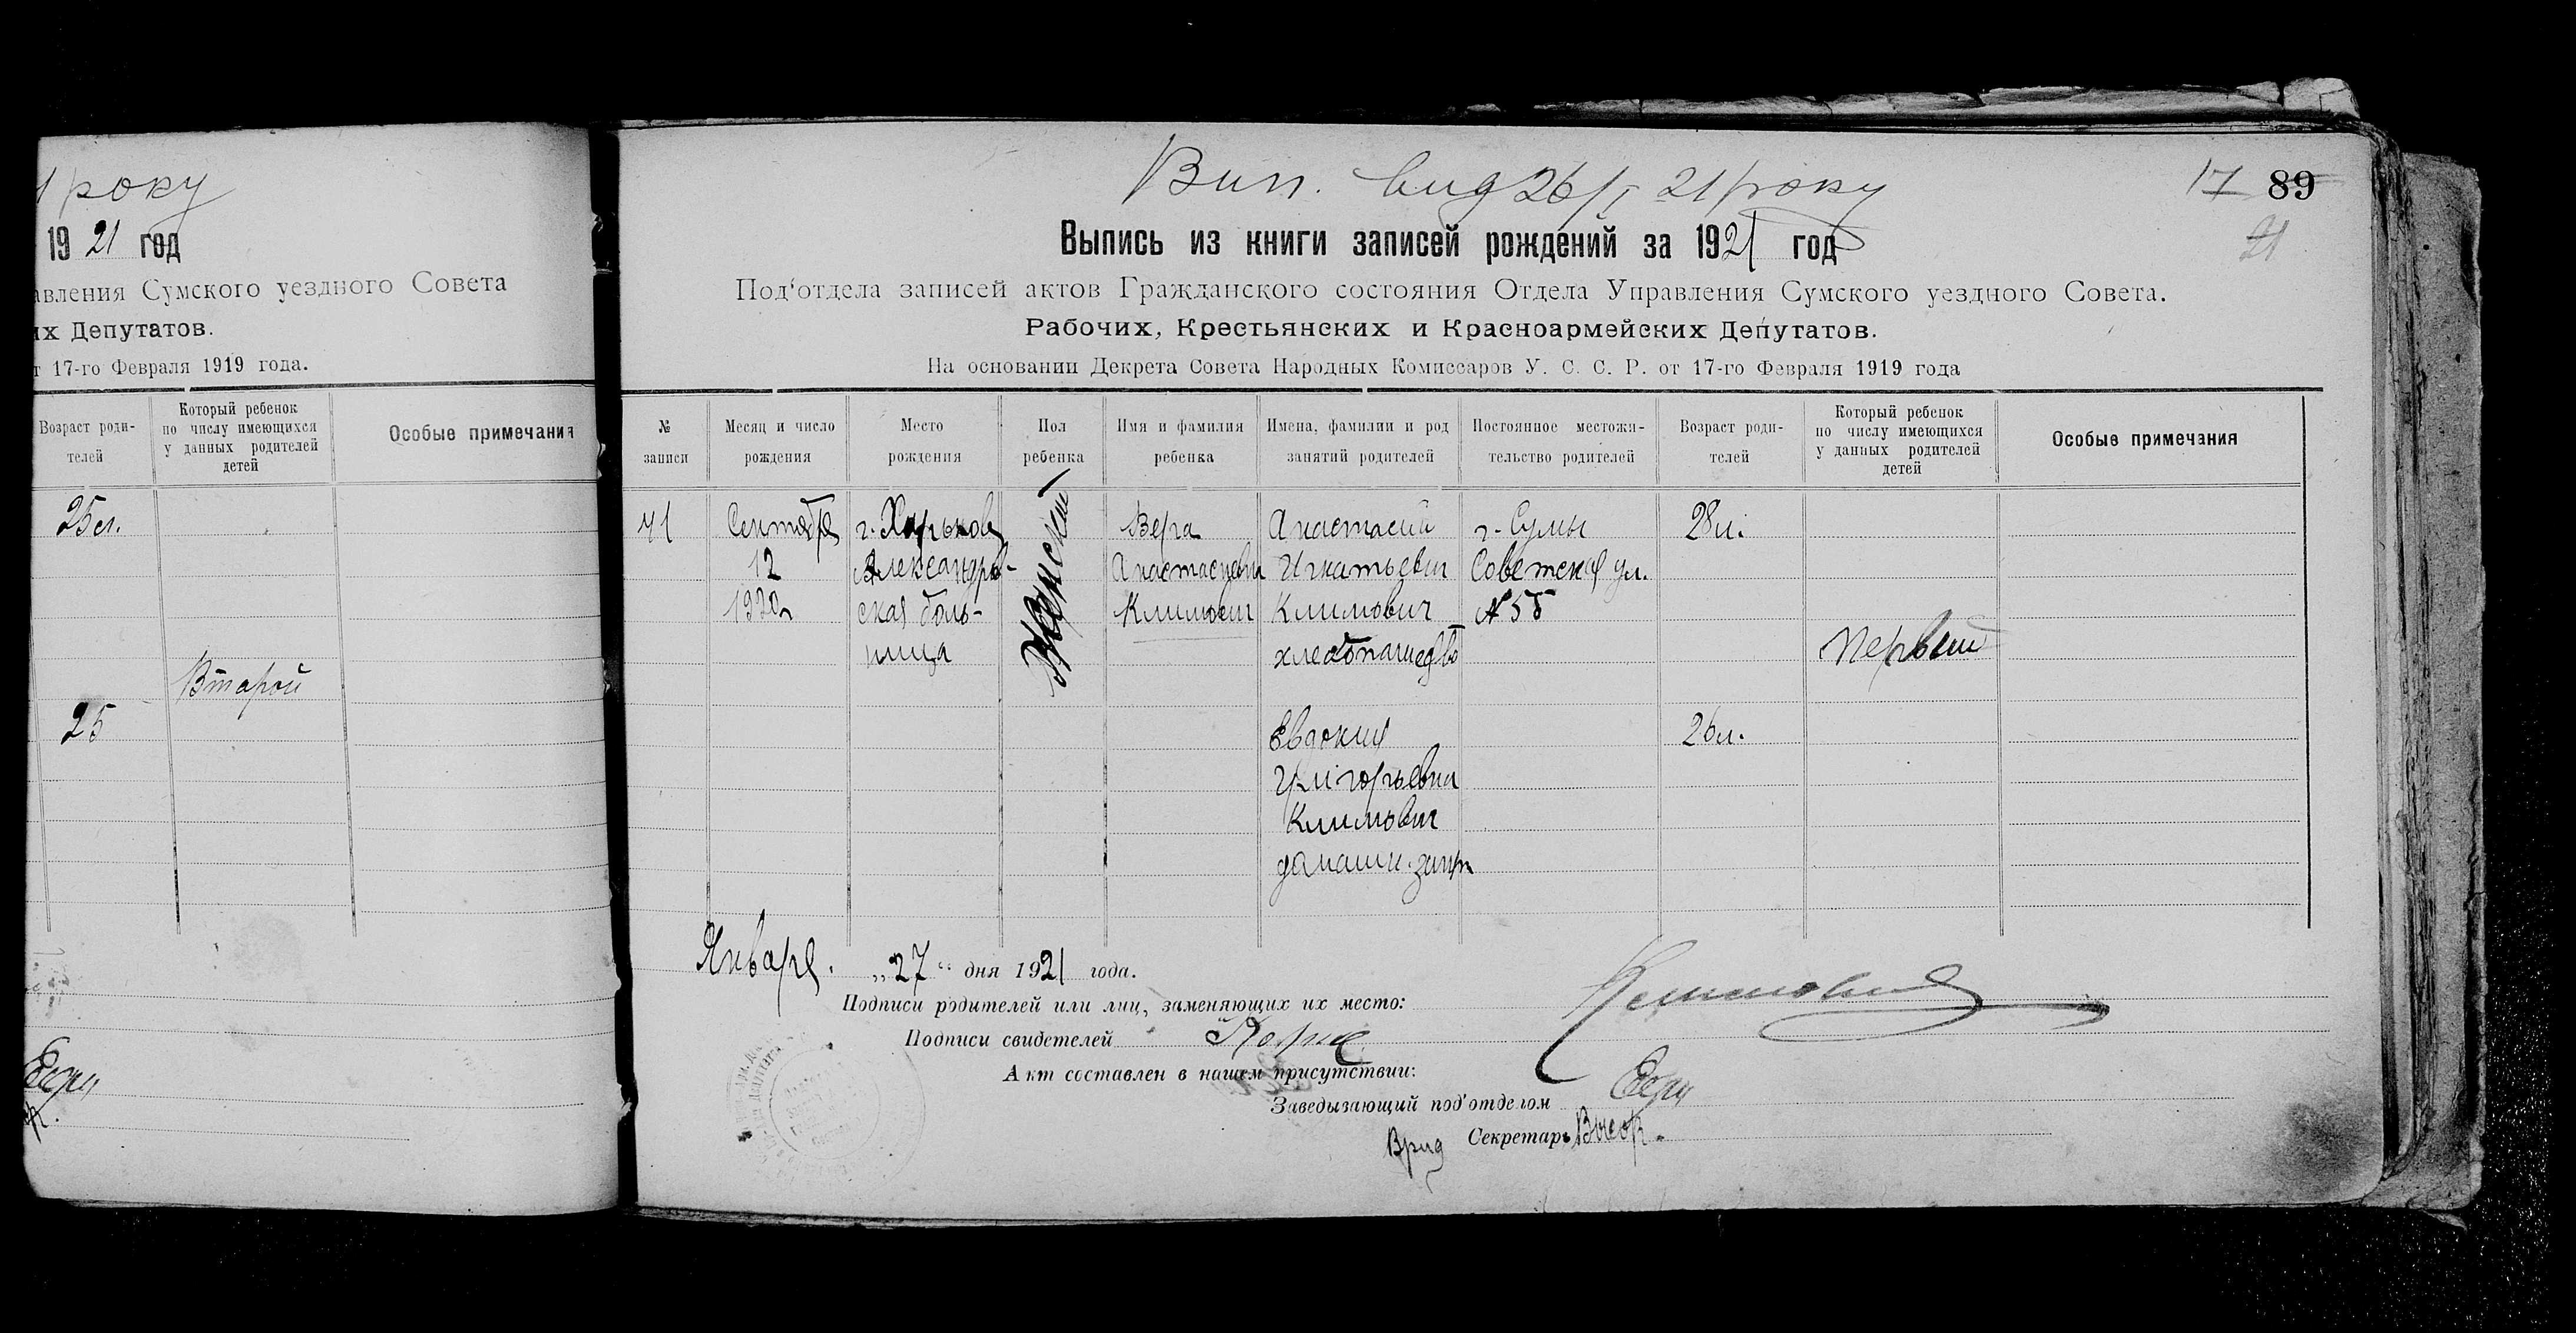 року
1921 год
авления Сумского уездного Совета
их Депутатов.
т 17-го Февраля 1919 года.
Возраст роди-
телей
Который ребенок
по числу имеющихся
у данных родителей
детей
Особые примечания
25 л.
Второй
25
Вип. вид 26/I 21 року
17 89
21
Выпись из книги записей рождений за 1921 год
Под'отдела записей актов Гражданского состояния Отдела Управления Сумского уездного Совета.
Рабочих, Крестьянских и Красноармейских Депутатов.
На основании Декрета Совета Народных Комиссаров У. С. С. Р. от 17-го Февраля 1919 года
№
записи
Месяц и число
рождения
Место
рождения
Пол
ребенка
Имя и фамилия
ребенка
Имена, фамилии и род
занятий родителей
Постоянное местожи-
тельство родителей
Возраст роди-
телей
Который ребенок
по числу имеющихся
у данных родителей
детей
Особые примечания
41
Сентября
12
1920 г.
г. Харьков
Александров-
ская боль-
ница
Женский
Вера
Анастасиевна
Климович
Анастасий
Игнатьевич
Климович
хлебопашество
Евдокия
Григорьевна
Климович
домашн. занят
г. Сумы
Советская ул.
№ 55
28 л.
26 л.
Первый
Января. „27" дня 1921 года.
Подписи родителей или лиц, заменяющих их место: Климович
Подписи свидетелей
Акт составлен в нашем присутствии:
Заведызающий под'отделом
Врид Секретарь